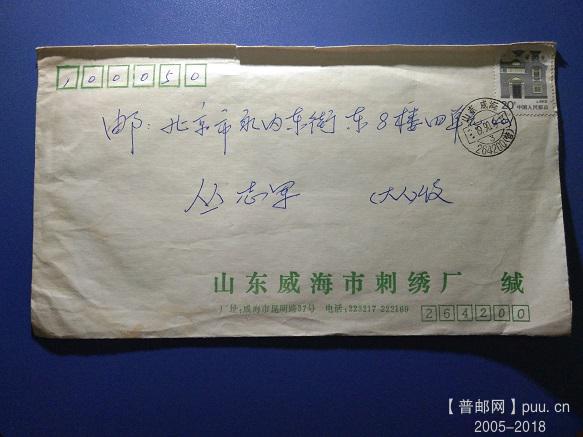 100050
20分 中国人民邮政
山东 威海
264200(营)
邮: 北京市永内东街东8楼四单
丛志军 (大人)收
山东威海市刺绣厂 缄
厂址:威海市昆明路37号 电话:223217 222169
264200
【普邮网】puu.cn
2005-2018